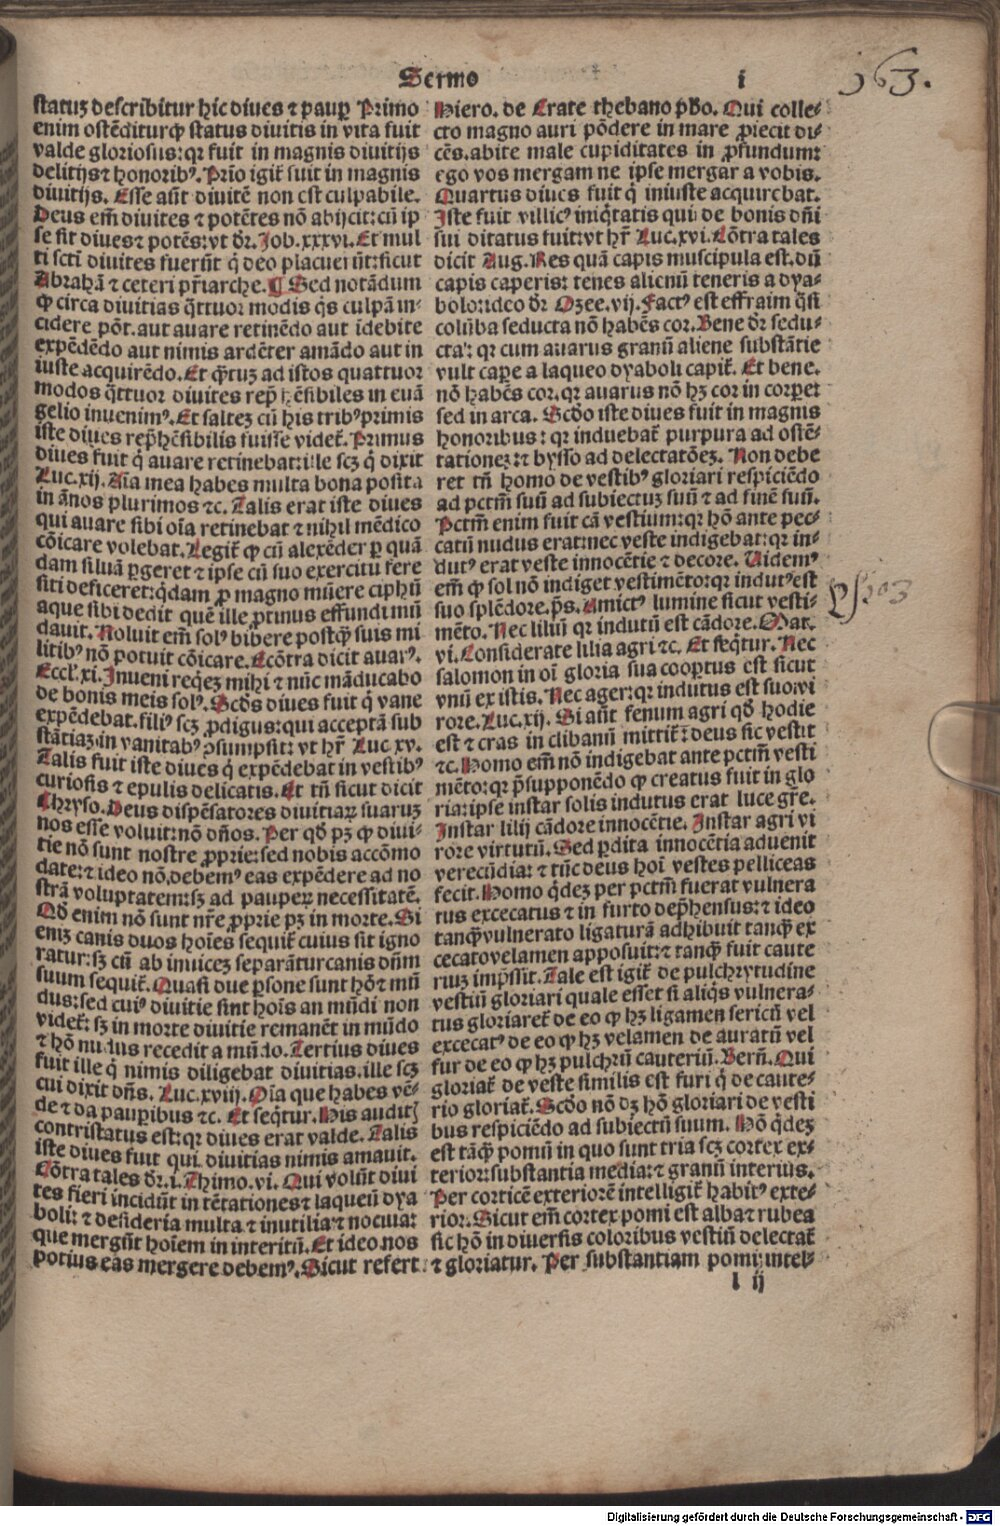 Sermo i
163.
statuꝫ describitur hic diues ⁊ paup̱ Primo
enim ostēditur ꝙ status diuitis in vita fuit
valde gloriosus: qꝛ fuit in magnis diuitijs
delitijs ⁊ honoribꝰ. Prīo igit̄ fuit in magnis
diuitijs. Esse aūt diuitē non est culpabile.
Deus em̄ diuites ⁊ potētes nō abijcit: cū ip
se sit diues ⁊ potēs: vt dr̄. Job. xxxvi. Et mul
ti scti diuites fuerūt q̇ deo placuerūt: sicut
Abrahā ⁊ ceteri pr̄iarche. ¶ Sed notādum
ꝙ circa diuitias q̄ttuor modis q̇s culpā in⸗
cidere pōt. aut auare retinēdo aut īdebite
expēdēdo aut nimis ardēter amādo aut in
iuste acquirēdo. Et q̄ꝫtuꝫ ad istos quattuor
modos q̄ttuor diuites rep̄hēsibiles in euā
gelio inuenimꝰ. Et salteꝫ cū his tribꝰ primis
iste diues rep̄hēsibilis fuisse videt̄. Primus
diues fuit q̇ auare retinebat: ille scꝫ q̇ dixit
Luc. xij. Aīa mea habes multa bona posita
in ānos plurimos ⁊c. Talis erat iste diues
qui auare sibi oīa retinebat ⁊ nihil mēdico
cōicare volebat. Legit̄ ꝙ cū alexēder ꝑ quā
dam siluā ꝑgeret ⁊ ipse cū suo exercitu fere
siti deficeret: q̇dam ꝓ magno mūere ciphū
aque sibi dedit quē ille ꝓtinus effundi mū
dauit. Noluit em̄ solꝰ bibere postꝙ̄ suis mi
litibꝰ nō potuit cōicare. Ecōtra dicit auarꝰ.
Eccl̄. xi. Inueni req̇eꝫ mihi ⁊ nūc māducabo
de bonis meis solꝰ. Scd̄s diues fuit q̇ vane
expēdebat. filiꝰ scꝫ ꝓdigus: qui acceptā sub
stātiaꝫ in vanitabꝰ ꝯsumpsit: vt hr̄ Luc xv.
Talis fuit iste diues q̇ expēdebat in vestibꝰ
curiosis ⁊ epulis delicatis. Et tn̄ sicut dicit
Chryso. Deus dispēsatores diuitiaꝝ suaruꝫ
nos esse voluit: nō dn̄os. Per qd̄ pꝫ ꝙ diui⸗
tie nō sunt nostre ꝓprie: sed nobis accōmo
date: ⁊ ideo nō debemꝰ eas expēdere ad no
strā voluptatem: sꝫ ad pauperꝫ necessitatē.
Qd̄ enim nō sunt nr̄e ꝓprie pꝫ in morte. Si
eniꝫ canis duos hoīes sequit̄ cuius sit igno
ratur: sꝫ cū ab inuiceꝫ separātur canis dn̄m
suum sequit̄. Quasi due ꝑsone sunt hō ⁊ mū
dus: sed cuiꝰ diuitie sint hoīs an mūdi non
videt̄: sꝫ in morte diuitie remanēt in mūdo
⁊ hō nudus recedit a mūdo. Tertius diues
fuit ille q̇ nimis diligebat diuitias. ille scꝫ
cui dixit dn̄s. Luc. xviij. Oīa que habes vē⸗
de ⁊ da pauꝑibus ⁊c. Et seq̇tur. His auditꝭ
contristatus est: qꝛ diues erat valde. Talis
iste diues fuit qui diuitias nimis amauit.
Cōtra tales dr̄. i. Thimo. vi. Qui volūt diui
tes fieri incidūt in tētationes ⁊ laqueū dya
boli: ⁊ desideria multa ⁊ inutilia ⁊ nociua:
que mergūt hoīem in interitū. Et ideo nos
potius eas mergere debemꝰ. Sicut refert
Hiero. de Crate thebano pħo. Qui colle⸗
cto magno auri pōdere in mare ꝓiecit di⸗
cēs. abite male cupiditates in ꝓfundum:
ego vos mergam ne ipse mergar a vobis.
Quartus diues fuit q̇ iniuste acquirebat.
Iste fuit villicꝰ iniq̇tatis qui de bonis dn̄i
sui ditatus fuit: vt hr̄ Luc. xvi. Cōtra tales
dicit Aug. Res quā capis muscipula est. dū
capis caperis: tenes alienū teneris a dya⸗
bolo: ideo dr̄ Ozee. vij. Factꝰ est effraim q̄si
colūba seducta nō habēs cor. Bene dr̄ sedu⸗
cta: qꝛ cum auarus granū aliene substātie
vult caꝑe a laqueo dyaboli capit̄. Et bene.
nō habēs cor. qꝛ auarus nō hꝫ cor in corꝑe:
sed in arca. Scd̄o iste diues fuit in magnis
honoribus: qꝛ induebat̄ purpura ad ostē⸗
tationeꝫ: ⁊ bysso ad delectatōeꝫ. Non debe
ret tn̄ homo de vestibꝰ gloriari respiciēdo
ad pctm̄ suū ad subiectuꝫ suū ⁊ ad finē suū.
Pctm̄ enim fuit cā vestium: qꝛ hō ante pec⸗
catū nudus erat: nec veste indigebat: qꝛ in⸗
dutꝰ erat veste innocētie ⁊ decore. Videmꝰ
em̄ ꝙ sol nō indiget vestimēto: qꝛ indutꝰ est
suo splēdore. ps̄. Amictꝰ lumine sicut vesti⸗
mēto. Nec liliū qꝛ indutū est cādore. Mat.
vi. Considerate lilia agri ⁊c. Et seq̇tur. Nec
salomon in oī gloria sua cooꝑtus est sicut
vnū ex istis. Nec ager: qꝛ indutus est suo vi
rore. Luc. xij. Si aūt fenum agri qd̄ hodie
est ⁊ cras in clibanū mittit̄: deus sic vestit
⁊c. Homo em̄ nō indigebat ante pctm̄ vesti
mēto: qꝛ p̄supponēdo ꝙ creatus fuit in glo
ria: ipse instar solis indutus erat luce gr̄e.
Instar lilij cādore innocētie. Instar agri vi
rore virtutū. Sed ꝑdita innocētia aduenit
verecūdia: ⁊ tūc deus hoī vestes pelliceas
fecit. Homo q̇dez per pctm̄ fuerat vulnera
tus excecatus ⁊ in furto dep̄hensus: ⁊ ideo
tanqꝫ̄ vulnerato ligaturā adhibuit tanqꝫ̄ ex
cecato velamen apposuit: ⁊ tanqꝫ̄ fuit caute
riuꝫ imp̄ssit. Tale est igit̄ de pulchrytudine
vestiū gloriari quale esset si aliq̇s vulnera⸗
tus gloriaret̄ de eo ꝙ hꝫ ligamen sericū vel
excecatꝰ de eo ꝙ hꝫ velamen de auratū vel
fur de eo ꝙ hꝫ pulchrū cauteriū. Bern̄. Qui
gloriat̄ de veste similis est furi q̇ de caute⸗
rio gloriat̄. Scd̄o nō dꝫ hō gloriari de vesti
bus respiciēdo ad subiectū suum. Hō q̇dez
est tāꝙ̄ pomū in quo sunt tria scꝫ cortex ex⸗
terior: substantia media: ⁊ granū interius.
Per corticē exteriorē intelligit̄ habitꝰ exte⸗
rior. Sicut em̄ cortex pomi est alba ⁊ rubea
sic hō in diuersis coloribus vestiū delectat̄
⁊ gloriatur. Per substantiam pomi: intel⸗
l ij
Ps 103
Digitalisierung gefördert durch die Deutsche Forschungsgemeinschaft - DFG